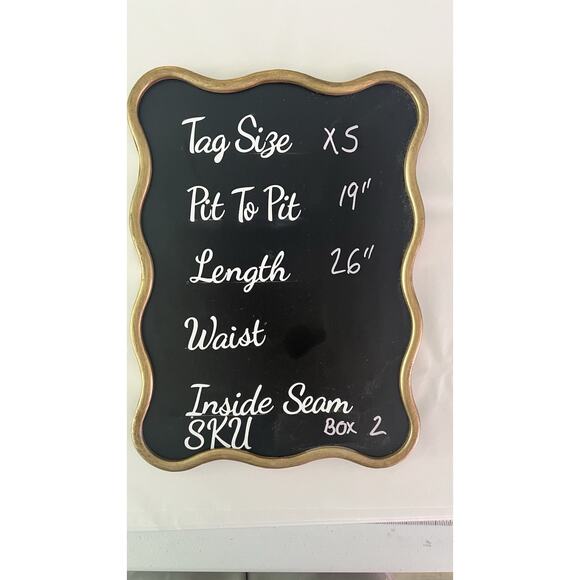 Tag Size XS
Pit To Pit 19"
Length 26"
Waist
Inside Seam
SKU BOX 2